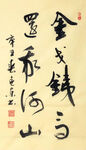 金戈鐵馬
還我河山
辛丑